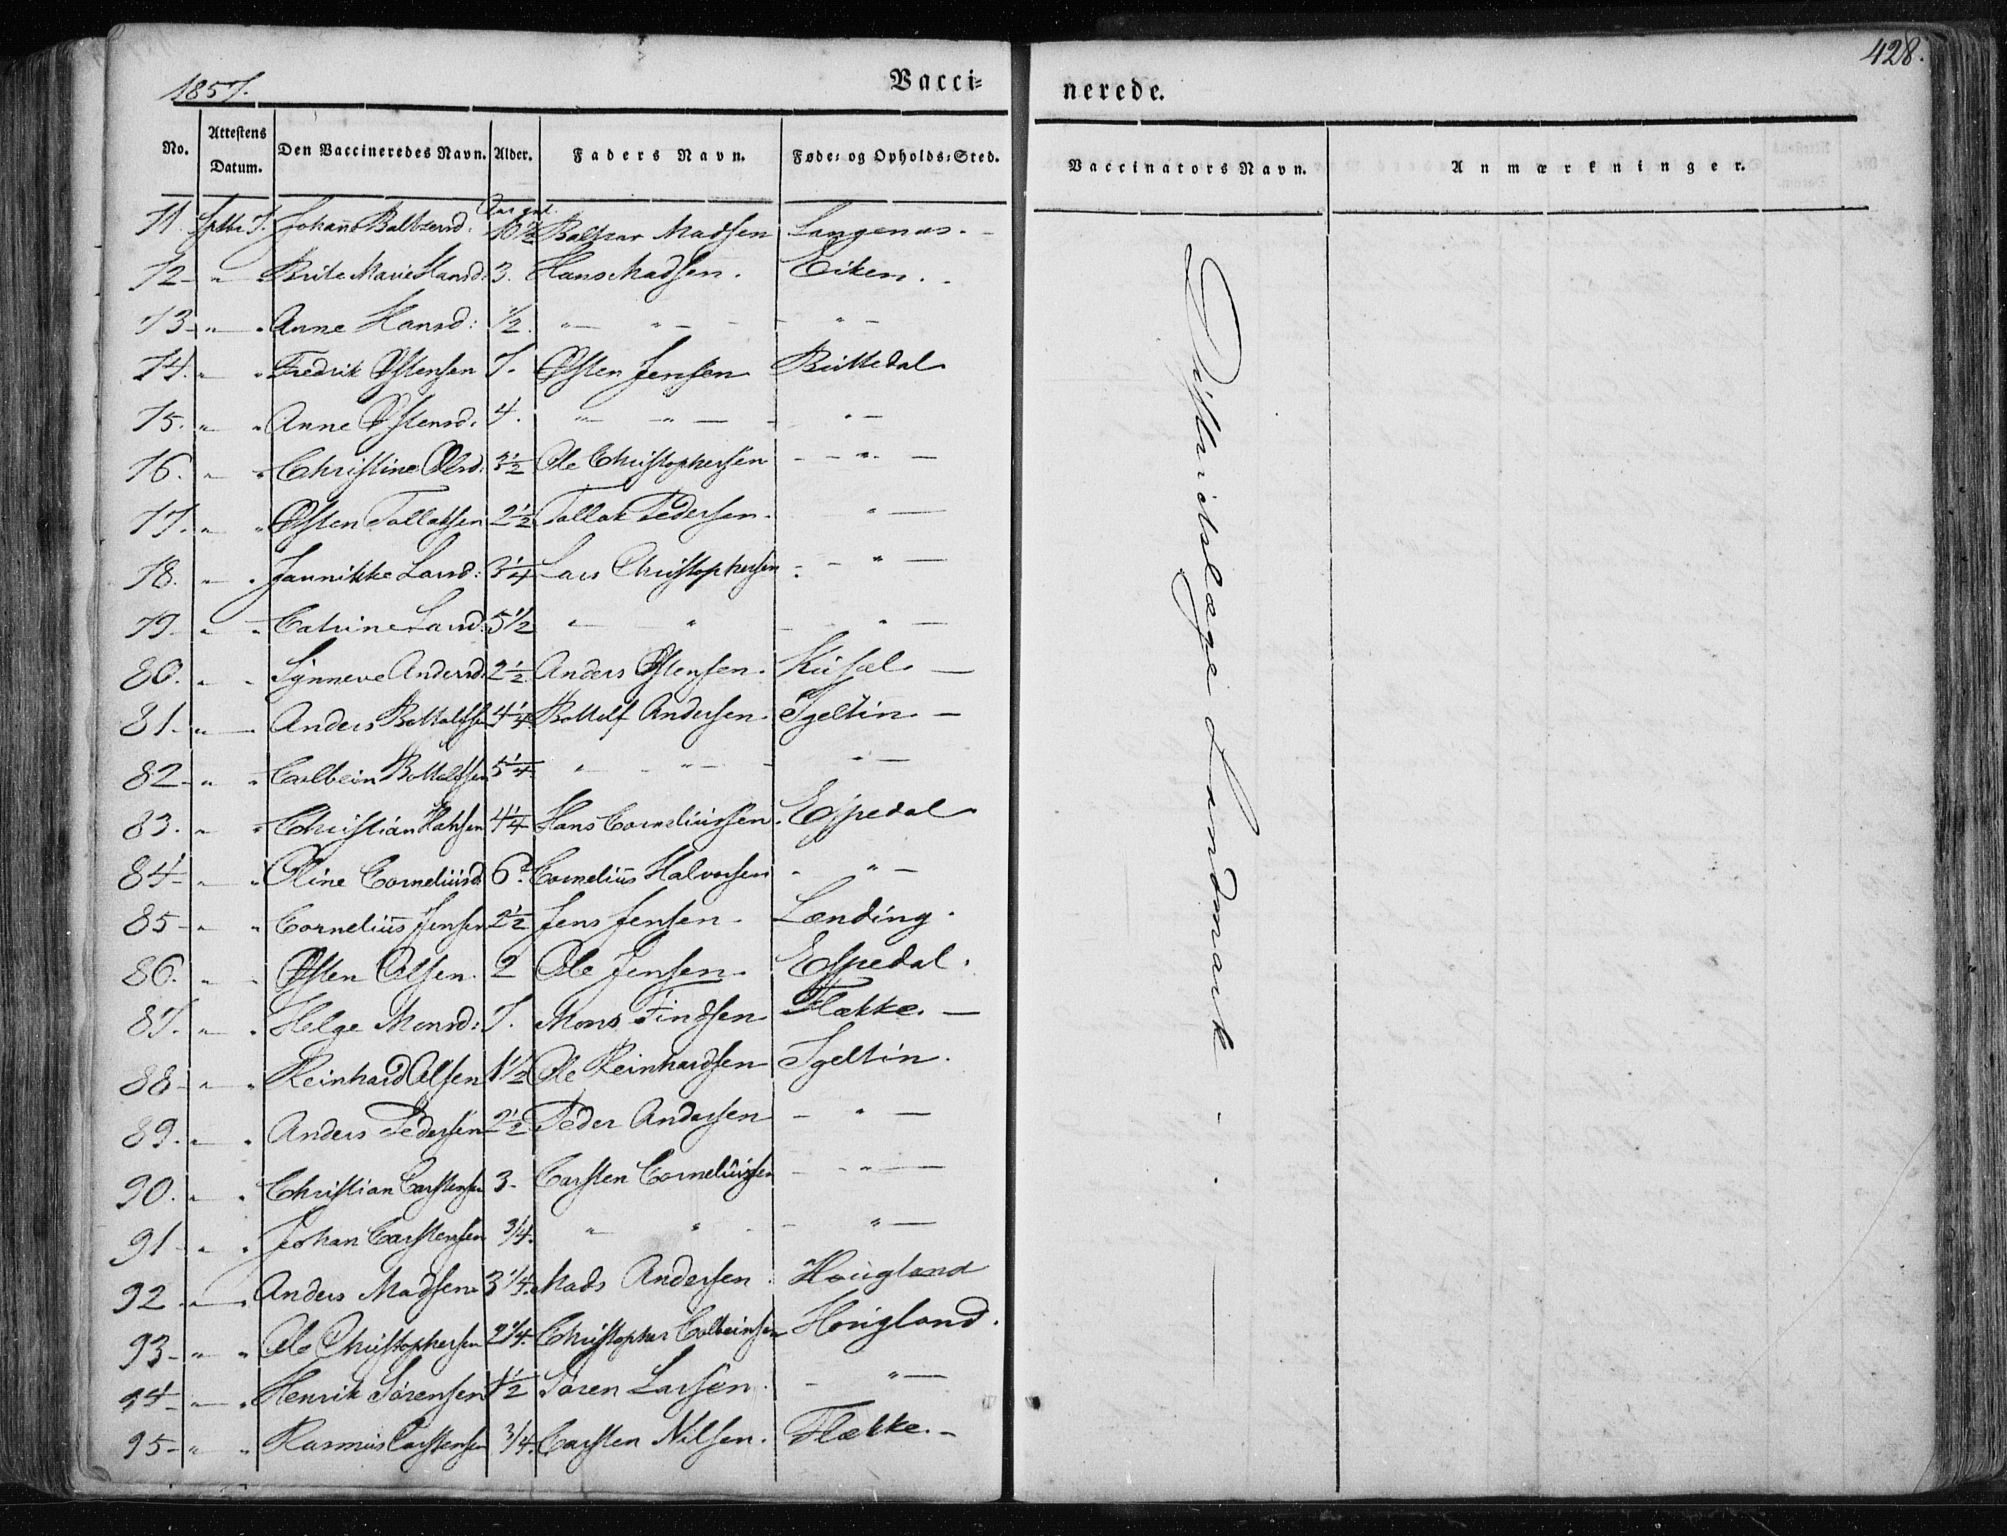 428.
1857.
Vacci=
nerede.
No. Attestens Datum. Den Vaccineredes Navn. Alder. Faders Navn. Føde= og Opholds=Sted.
Vaccinators Navn. Anmærkninger.
71. Septbr 7. Johanne Baltzersd: 10 1/2 Baltzar Madsen Langenæs. -
72 - " - Brite Marie Hansd: 3. Hans Madsen. Eiken. -
73 - " - " Anne Hansd: 1/2. " " - " -
74. " " Fredrik Østensen 7. Østen Jensen Buttedal
75. " " Anne Østensd. 4. " " - " -
76. " " Christine Olsd: 3 1/2 Ole Christophersen - " -
77. " " Østen Tollaksen 2 1/2 Tollak Pedersen. " -
78. " " Jannikke Larsd: 3 1/4 Lars Christophersen - " -
79 - " " Catrine Larsd: 5 1/2 " " - " -
80. " " Synneve Andersd: 2 1/2 Anders Østensen. -
81 - " - Anders Bottolfsen 4 1/4 Bottolf Andersen. Igeltin -
82 - " " Colbein Bottolfsen 5 1/4 " " - " -
83. " " Christian Hansen 4 1/4 Hans Corneliussen. Espedal
84 - " " Oline Corneliusd: 6. Cornelius Halvorsen - " -
85 - " " Cornelius Jensen 2 1/2 Jens Jensen. Lænding.
86. " " Østen Olsen. 2 Ole Jensen. Espedal.
87. " " Helge Monsd: 7. Mons Findsen Flække. -
88 - " " Reinhard Olsen 1 1/2 Ole Reinhardsen Igeltin.
89. " " Anders Pedersen 2 1/2 Peder Andersen - " -
90. " " Christian Carstensen 3. Carsten Corneliussen - " -
91 " " Johan Carstensen 3/4. " " - " -
92 - " - Anders Madsen 3 1/4. Mads Andersen Hougland
93 - " " Ole Christophersen 2 1/4. Christopher Colbeinsen Hougland.
94 - " - Henrik Sørensen 1 1/2 Søren Larsen. - " -
95 - " " Rasmus Carstensen 3/4. Carsten Nilsen. Flække. -
Districtslæge Landmark - . -